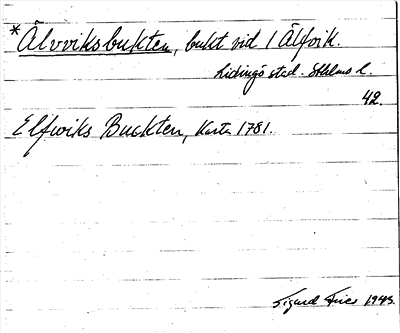 *Älvviksbukten, bukt vid 1 Älfvik.
Lidingö stad. Sthlms l.
42.
Elfwiks Buckten, Karta 1781.
Sigurd Fries 1945.